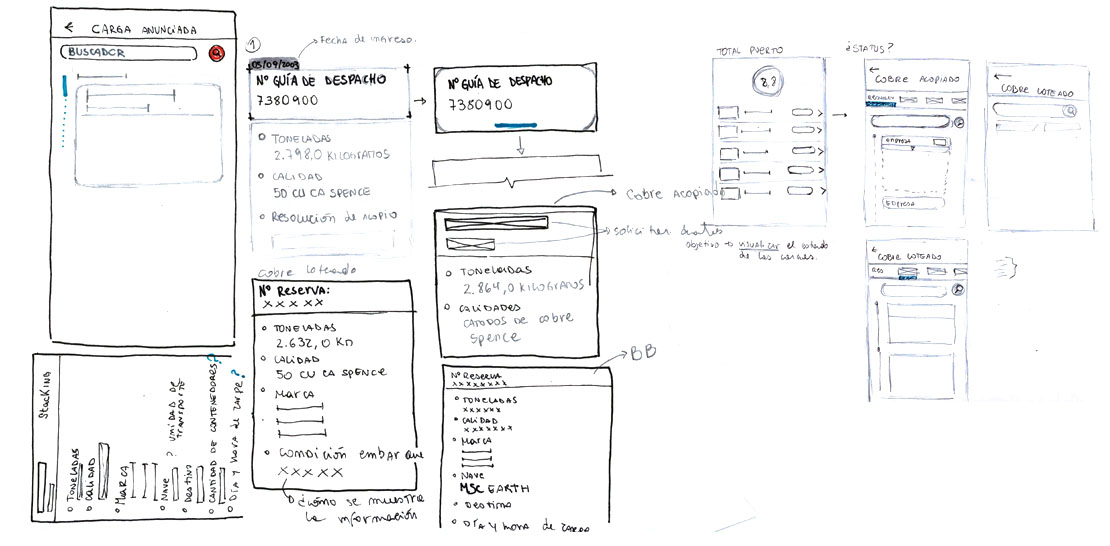 ← CARGA ANUNCIADA
BUSCADOR
1
Fecha de ingreso.
05/09/2003
Nº GUÍA DE DESPACHO
7380900
TONELADAS
2.798,0 KILOGRAMOS
CALIDAD
50 CU CA SPENCE
RESOLUCIÓN de acopio
Cobre Loteado
Nº RESERVA:
XX XXX
TONELADAS
2.632,0 Kn
CALIDAD
50 CU CA SPENCE
MARCA
CONDICIÓN embarque
XXXXX
¿Cómo se muestra
la información
Nº GUÍA DE DESPACHO
7380900
Cobre Acopiado
solicitar
TONELADAS
2.864,0 KILOGRATOS
CALIDADES
CATODOS DE COBRE
SPENCE
BB
Nº RESERVA
XXXXXXXX
TONELADAS
XXXXXX
CALIDAD
XXXXXXX
MARCA
NAVE
MSC EARTH
DESTINO
DÍA Y HORA DE ZARPE
Stacking
TONELADAS
CALIDAD
MARCA
NAVE
? UNIDAD DE
TRANSPORTE
DESTINO
CANTIDAD DE CONTENEDORES?
DÍA Y HORA DE ZARPE?
TOTAL PUERTO
objetivo → visualizar el
de las
¿STATUS?
←
COBRE ACOPIADO
EMPRESA
EMPRESA
←
COBRE LOTEADO
←
COBRE LOTEADO
RES